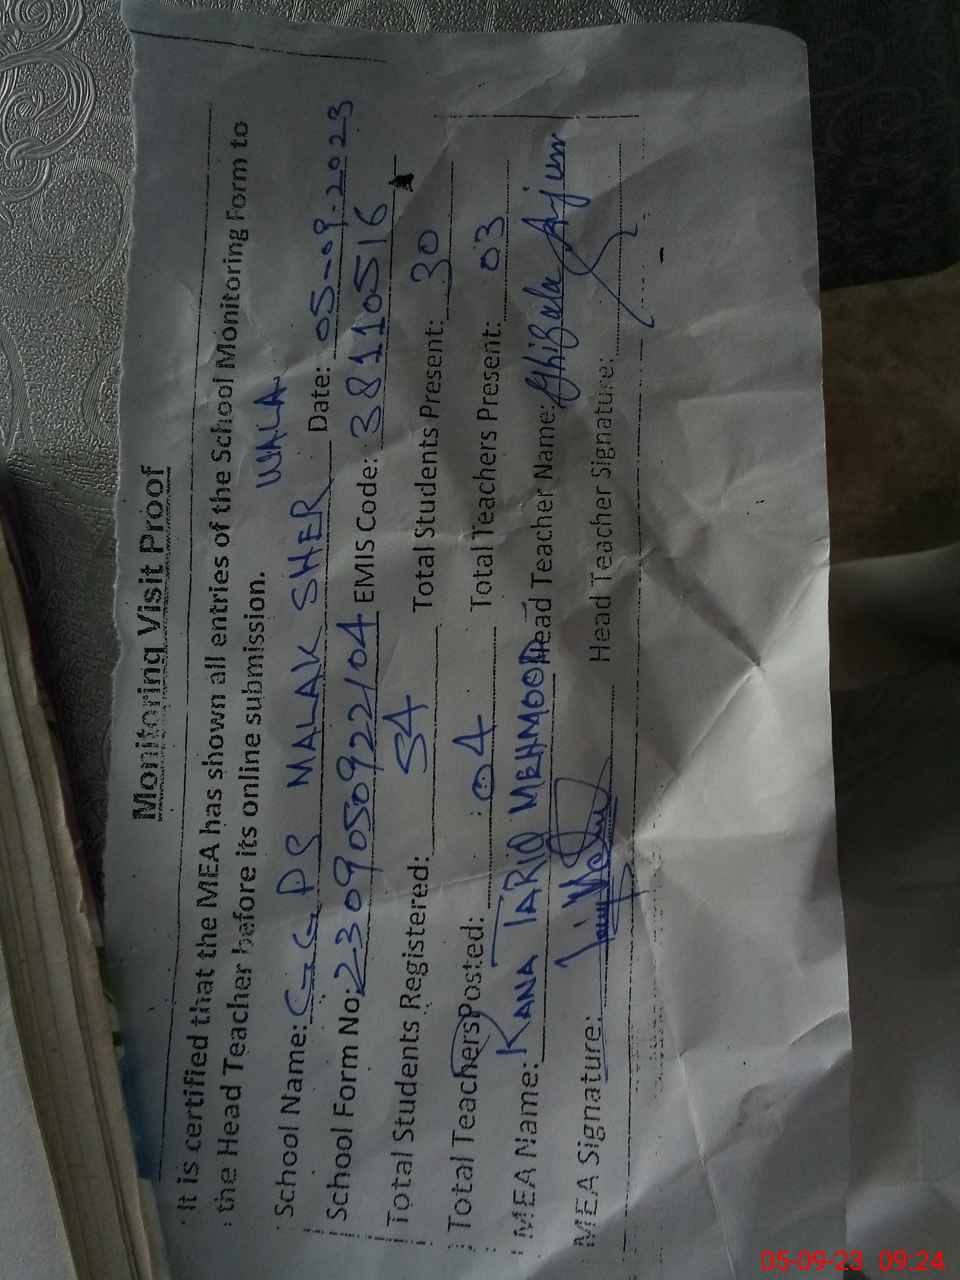 Monitoring Visit Proof
It is certified that the MEA has shown all entries of the School Monitoring Form to
the Head Teacher before its online submission.
School Name: GGPS MALAK SHER WALA Date: 05-09-2023
School Form No: 2309050922104 EMIS Code: 38110516
Total Students Registered: 54 Total Students Present: 30
Total Teachers Posted: 04 Total Teachers Present: 03
MEA Name: RANA TARIQ MEHMOOD Head Teacher Name: Ghizala Anjum
MEA Signature: Head Teacher Signature:
05-09-23 09:24